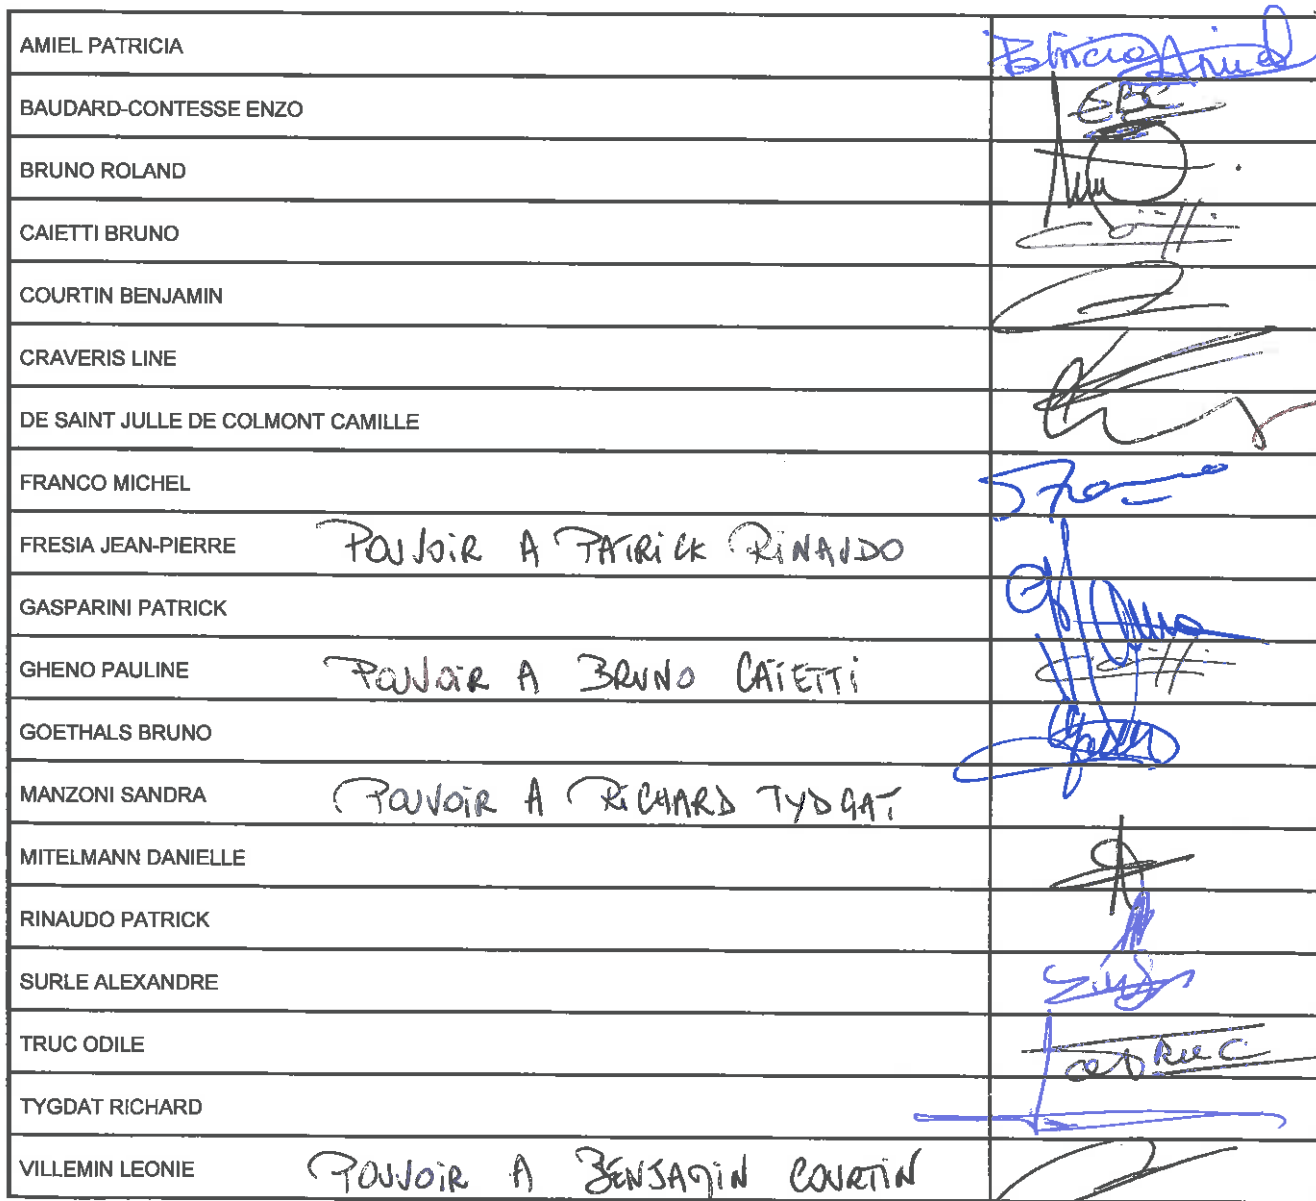 AMIEL PATRICIA Patricia Amiel
BAUDARD-CONTESSE ENZO EBC
BRUNO ROLAND
CAIETTI BRUNO
COURTIN BENJAMIN
CRAVERIS LINE
DE SAINT JULLE DE COLMONT CAMILLE
FRANCO MICHEL
FRESIA JEAN-PIERRE POUVOIR A PATRICK RINAUDO
GASPARINI PATRICK
GHENO PAULINE POUVOIR A BRUNO CAIETTI
GOETHALS BRUNO
MANZONI SANDRA POUVOIR A RICHARD TYDGAT
MITELMANN DANIELLE
RINAUDO PATRICK
SURLE ALEXANDRE
TRUC ODILE
TYGDAT RICHARD
VILLEMIN LEONIE POUVOIR A BENJAMIN COURTIN